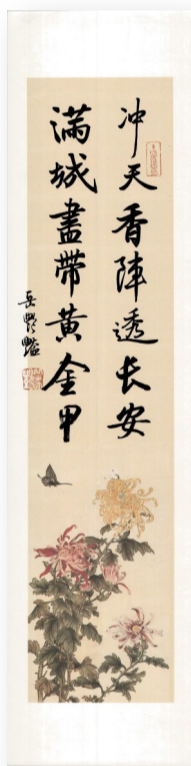 冲天香陣透长安
满城盡带黄金甲
岳